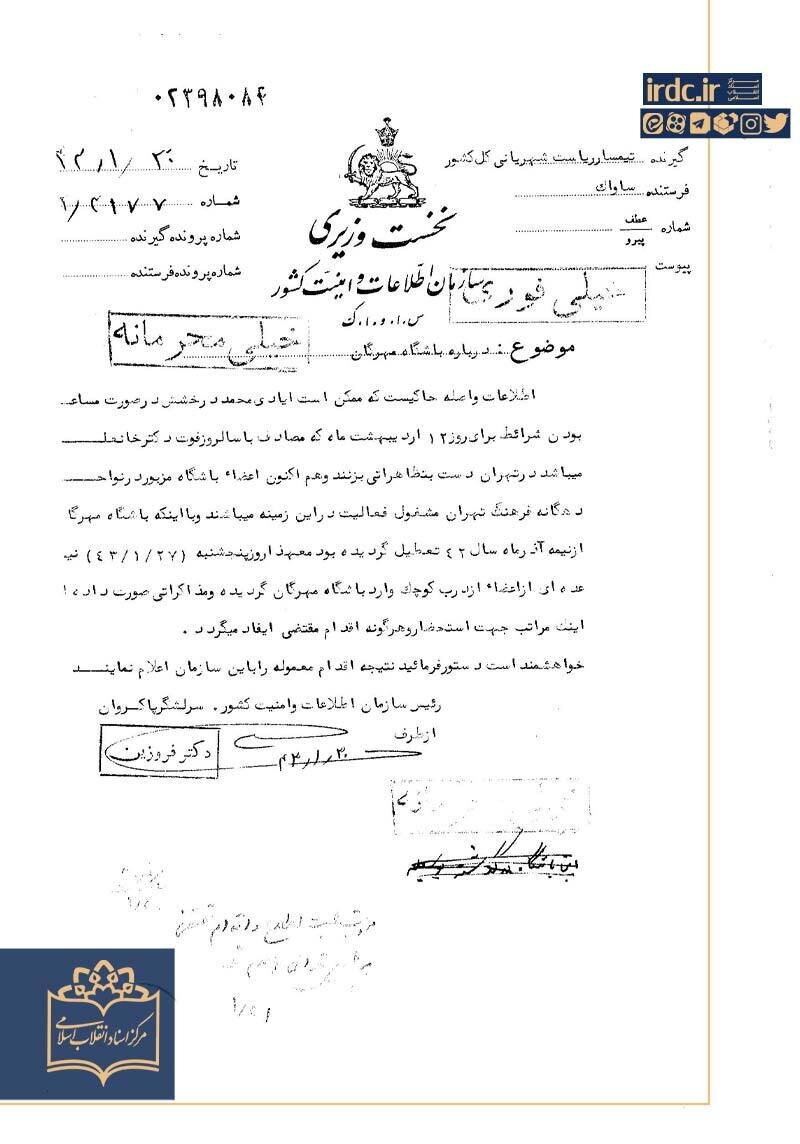 irdc.ir
مرکز اسناد انقلاب اسلامی
۰۲۳۹۸۰۸۴
گیرنده تیمسار ریاست شهربانی کل کشور
فرستنده ساواك
شماره عطف پیرو
پیوست
تاریخ ۴۳/۱/۳۰
شماره
شماره پرونده گیرنده
شماره پرونده فرستنده
نخست وزیری
سازمان اطلاعات و امنیت کشور
س.ا.و.ا.ک
خیلی فوری
خیلی محرمانه
موضوع : درباره باشگاه مهرگان
اطلاعات واصله حاکیست که ممکن است ایادی محمد درخشش درصورت مساعد
بودن شرائط برای روز ۱۲ اردیبهشت ماه که مصادف با سالروز فوت دکتر خانعلـــ
میباشد درتهران دست بتظاهراتی بزنند وهم اکنون اعضاء باشگاه مزبور درنواحـــ
دهگانه فرهنگ تهران مشغول فعالیت دراین زمینه میباشند وبا اینکه باشگاه مهرگا
ازنیمه آذرماه سال ٤٢ تعطیل گردیده بود معهذا روزپنجشنبه (٤٣/١/٢٧) نیـ
عده ای ازاعضاء ازدرب کوچك وارد باشگاه مهرگان گردیده ومذاکراتی صورت داده ا
اینك مراتب جهت استحضار وهرگونه اقدام مقتضی ایفاد میگردد .
خواهشمند است دستورفرمائید نتیجه اقدام معموله رابه این سازمان اعلام نماینـــد
رئیس سازمان اطلاعات وامنیت کشور . سرلشگر پاکروان
ازطرف
دکتر فروزین
۴۳/۱/۳۰
خیلی محرمانه
مرکز اسناد انقلاب اسلامی